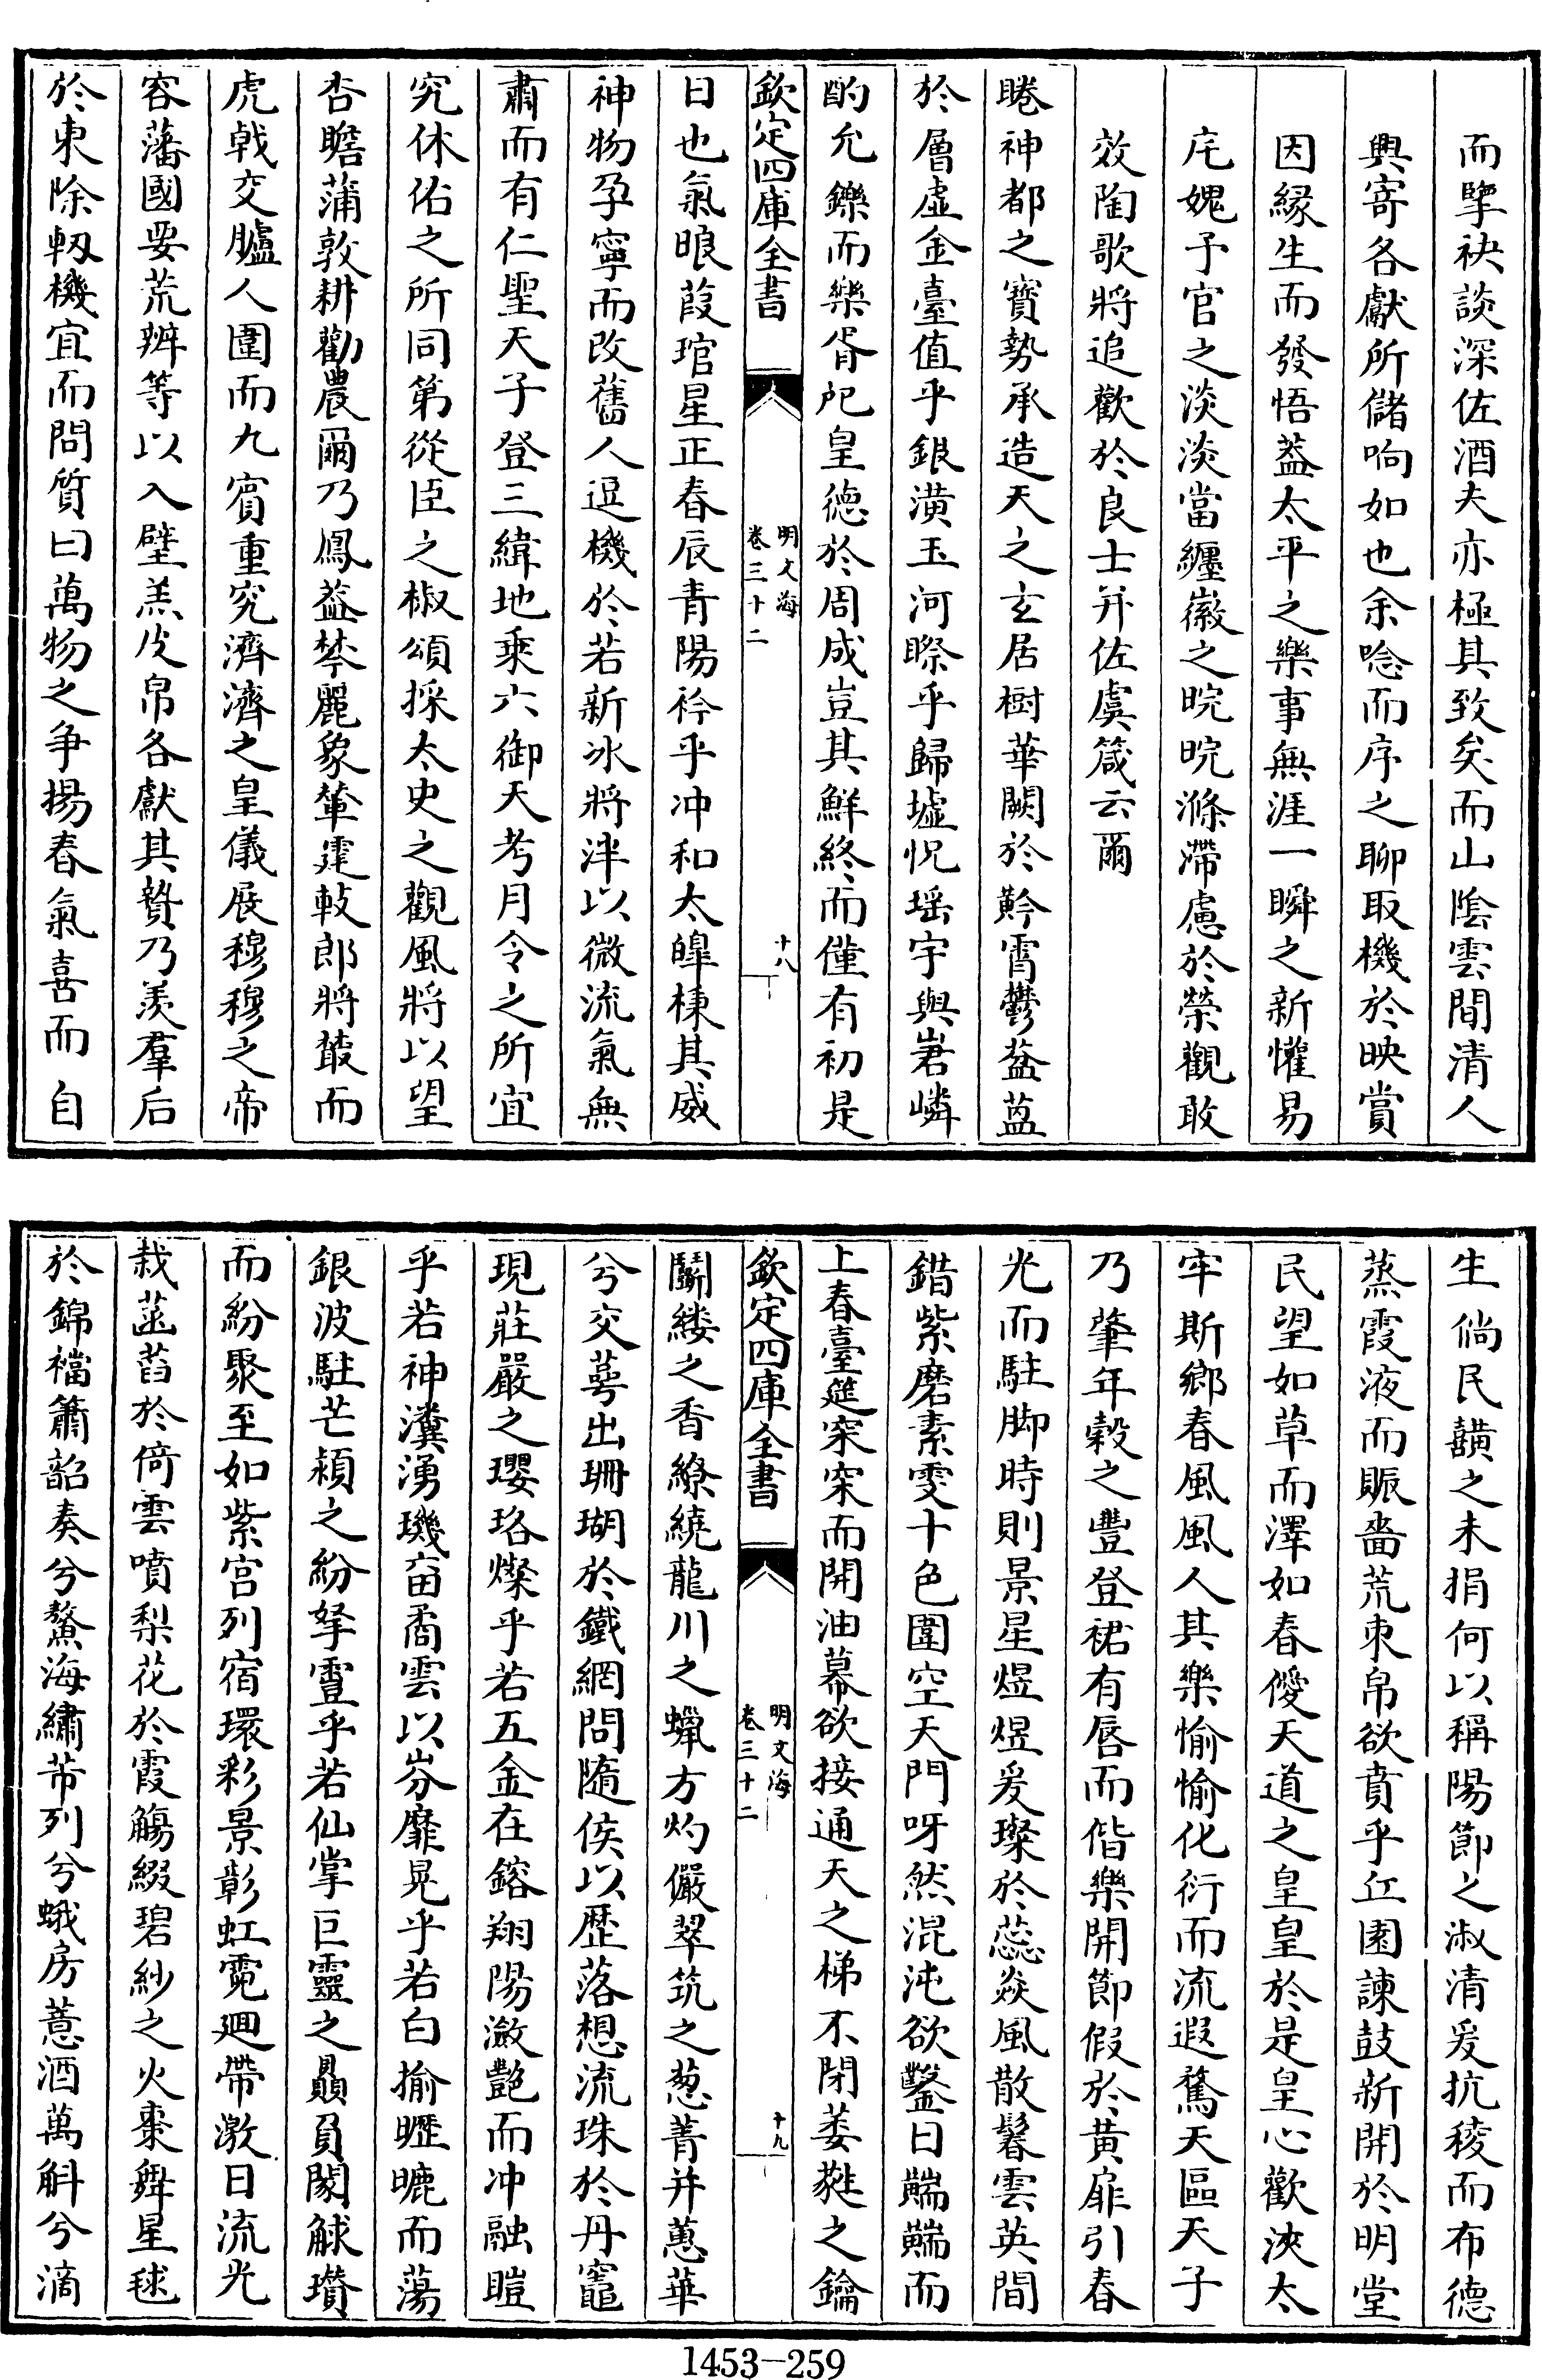 而擥袂談深佐酒夫亦極其致矣而山陰雲間清人
興寄各獻所儲响如也余唸而序之聊取機於映賞
因緣生而發悟葢太平之樂事無涯一瞬之新懽易
庀媿予官之淡淡當纏徽之晥晥滌滯慮於榮觀敢
效陶歌將追歡於良士并佐虞箴云爾
睠神都之寳勢承造天之玄居樹華闕於黅霄鬱葢葢
於層虛金臺值乎銀潢玉河睽乎歸墟怳瑶宇與峉嶙
酌允鑠而樂胥𠨾皇德於周成豈其鮮終而僅有初是
欽定四庫全書
明文海
卷三十二
十八
日也氣㫰葭琯星正春辰青陽衿乎冲和太皥棟其威
神物孕寧而改舊人逗機於若新冰將泮以微流氣無
肅而有仁聖天子登三緯地乘六御天考月令之所宜
究休佑之所同第從臣之椒頌採太史之觀風將以望
杏瞻蒲敦耕勸農爾乃鳳葢棽麗象輦建㪇郎將䕺而
虎戟交臚人圍而九賓重究濟濟之皇儀展穆穆之帝
容藩國要荒辨等以入璧羔皮帛各獻其贄乃羨羣后
於東除軔機宜而問質曰萬物之争揚春氣喜而自
生倘民蘱之未捐何以稱陽節之淑清爰抗稜而布德
蒸霞液而賑嗇荒束帛欲賁乎丘園諫鼓新開於明堂
民望如草而澤如春僾天道之皇皇於是皇心歡浹太
牢斯鄉春風風人其樂愉愉化衍而流遐騖天區天子
乃肇年穀之豐登裙有唇而偕樂開節假於黃扉引春
光而駐脚時則景星煜煜爰璨於蕊焱風散鬌雲英間
錯紫磨素雯十色圍空天門呀然混沌欲鑿日黼黼而
上春臺筵穼穼而開油幕欲接通天之梯不閉葳蕤之鑰
欽定四庫全書
明文海
卷三十二
十九
鬭緌之香繚繞龍川之蠟方灼儼翠筑之葱菁并蕙華
兮交蕚出珊瑚於鐵網問隨侯以歴落想流珠於丹竈
現莊嚴之瓔珞燦乎若五金在鎔翔陽瀲艶而冲融暟
乎若神瀵湧璣畝矞雲以芬霏晃乎若白揄曭㫰而蕩
銀波駐芒潁之紛拏霻乎若仙掌巨靈之贔負闔觩瓚
而紛聚至如紫宫列宿環彩景彰虹霓迴帶激日流光
栽菡萏於倚雲噴梨花於霞觴綴碧紗之火棗舞星毬
於錦襠簫韶奏兮鰲海繡帟列兮蛾房薏酒萬斛兮滴
1453—259